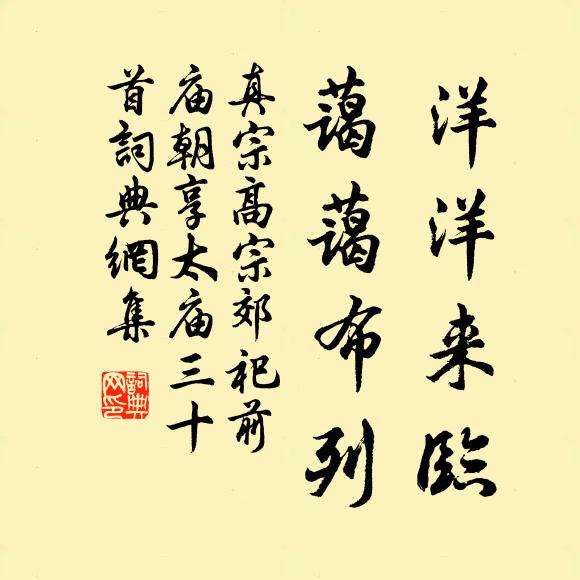 洋洋来临
蔼蔼布列
真宗高宗郊祀前
庙朝享太庙三十
首詞典網集
詞典
网印